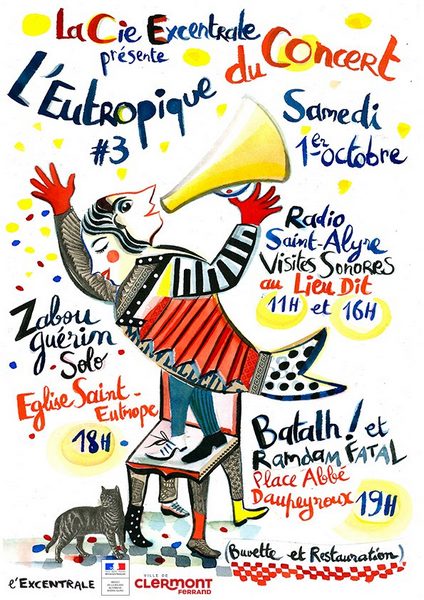 La Cie Excentrale
présente
L'Eutropique
#3
du Concert
Samedi
1er octobre
Radio
Saint-Alyre
Visites Sonores
au Lieu Dit
11H et 16H
Zabou
guérim
Solo
Eglise Saint-
Eutrope
18H
Batalh! et
Ramdam FATAL
Place Abbé
Daupeyroux 19H
(Buvette et Restauration)
l'EXCENTRALE
VILLE DE
CLERMONT
FERRAND